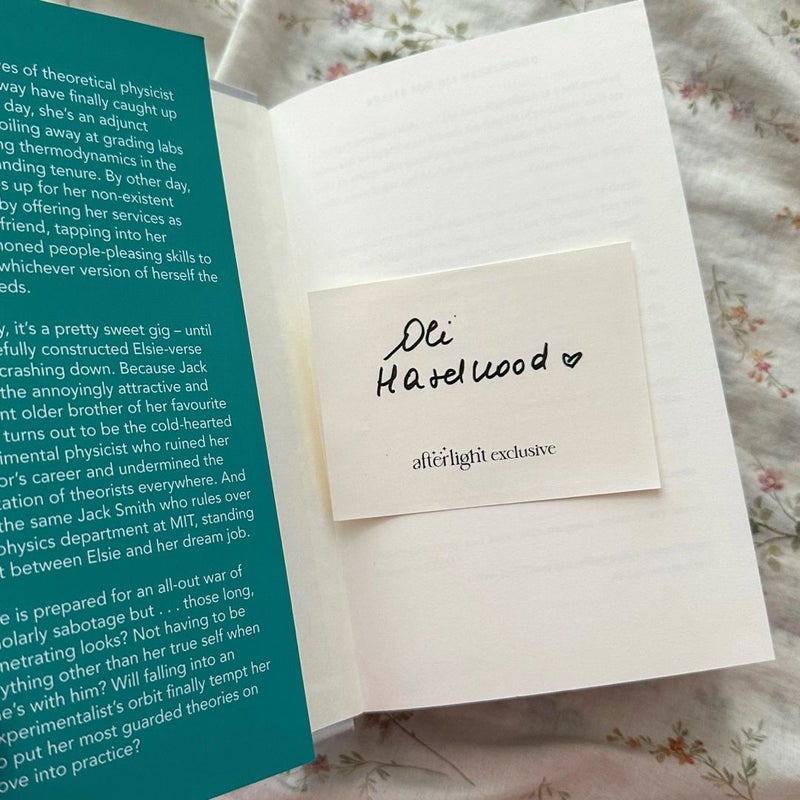 res of theoretical physicist
way have finally caught up
day, she's an adjunct
oiling away at grading labs
ng thermodynamics in the
anding tenure. By other day,
s up for her non-existent
by offering her services as
friend, tapping into her
honed people-pleasing skills to
whichever version of herself the
eds.
y, it's a pretty sweet gig – until
efully constructed Elsie-verse
crashing down. Because Jack
the annoyingly attractive and
nt older brother of her favourite
turns out to be the cold-hearted
imental physicist who ruined her
or's career and undermined the
tation of theorists everywhere. And
the same Jack Smith who rules over
physics department at MIT, standing
t between Elsie and her dream job.
e is prepared for an all-out war of
olarly sabotage but . . . those long,
netrating looks? Not having to be
ything other than her true self when
e's with him? Will falling into an
xperimentalist's orbit finally tempt her
o put her most guarded theories on
ove into practice?
Ali
Hazelwood ♡
afterlight exclusive